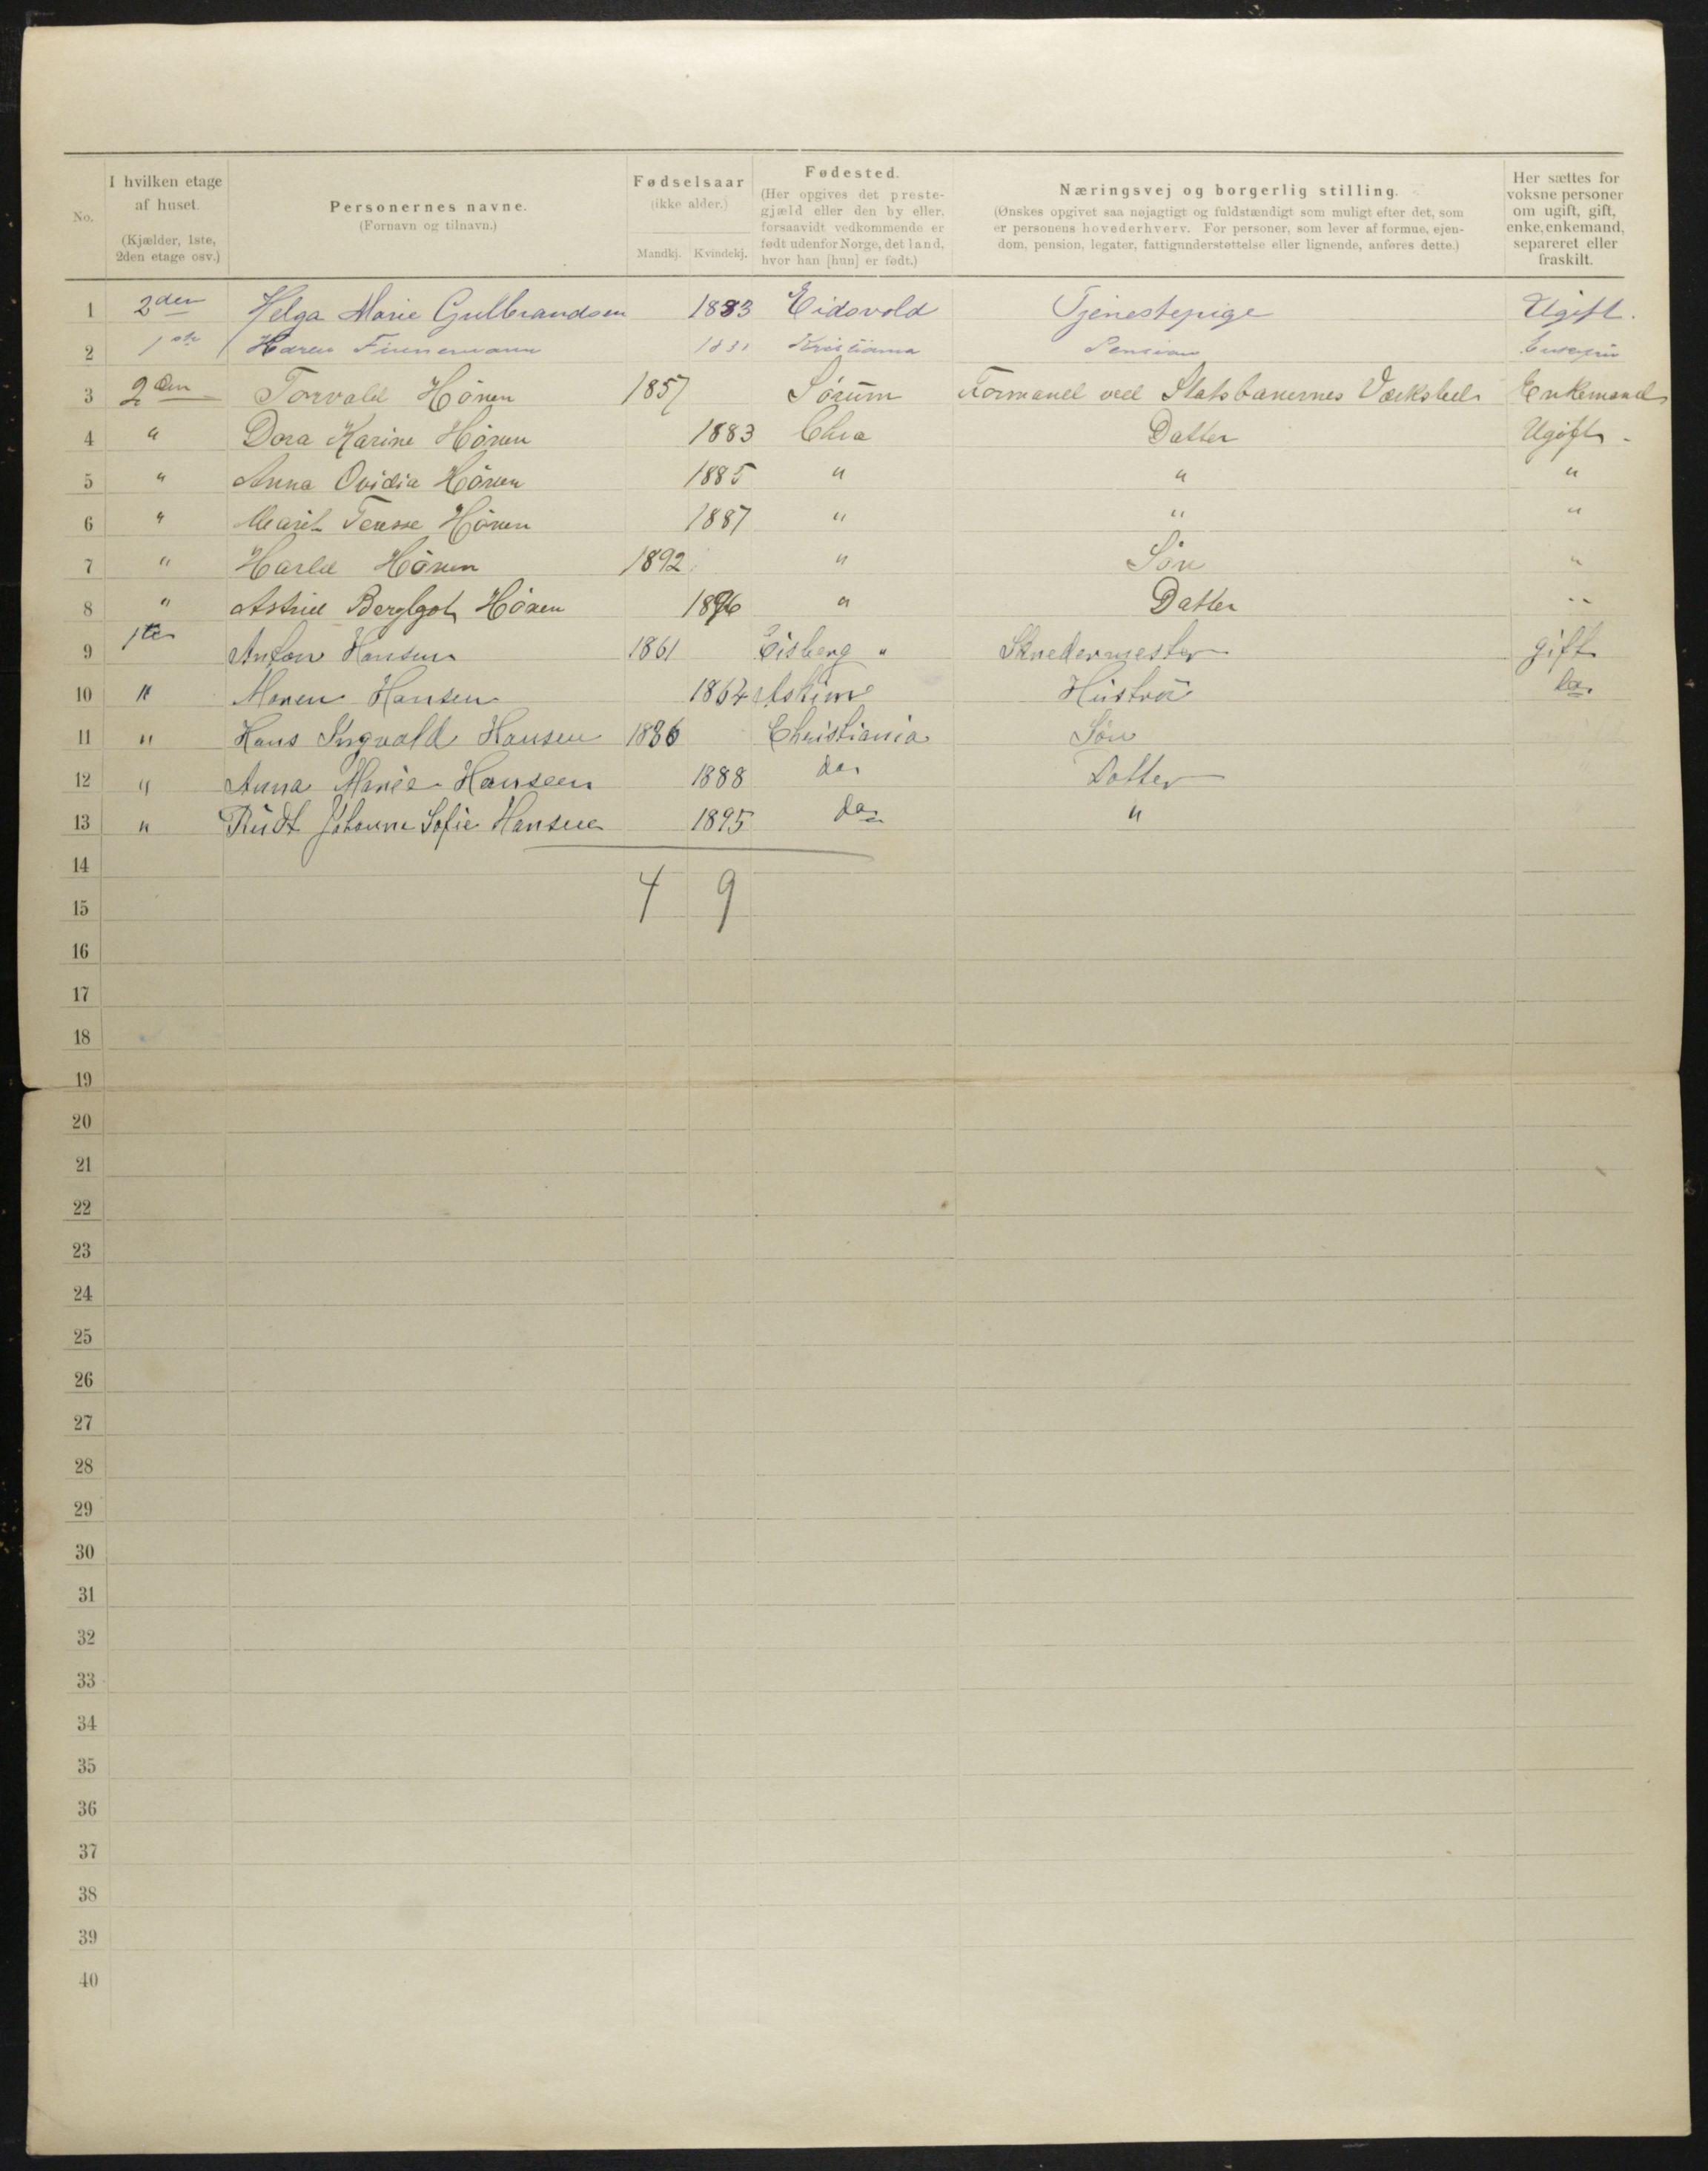 No.
I hvilken etage
af huset.
(Kjælder, 1ste,
2den etage osv.)
Personernes navne.
(Fornavn og tilnavn.)
Fødselsaar
(ikke alder.)
Mandkj. Kvindekj.
Fødested.
(Her opgives det preste-
gjæld eller den by eller,
forsaavidt vedkommende er
født udenfor Norge, det land,
hvor han [hun] er født.)
Næringsvej og borgerlig stilling.
(Ønskes opgivet saa nøjagtigt og fuldstændigt som muligt efter det, som
er personens hovederhverv. For personer, som lever af formue, ejen-
dom, pension, legater, fattigunderstøttelse eller lignende, anføres dette.)
Her sættes for
voksne personer
om ugift, gift,
enke, enkemand,
separeret eller
fraskilt.
1 2den Helga Marie Gulbrandsen 1883 Eidsvold Tjenestepige Ugift.
2 1ste Karen 1831 Kristiania Pension
3 2den Torvald Hönen 1857 Sörum Formand ved Statsbanernes Værksted Enkemand
4 " Dora Karine Hönen 1883 Chra Datter Ugift
5 " Anna Ovidia Hönen 1885 " " "
6 " Marit Hönen 1887 " " "
7 " Harld Hönen 1892 " Sön "
8 " Astrid Hönen 1896 " Datter "
9 1ste Anton Hansen 1861 Eisberg " Skredermester gift
10 " Maren Hansen 1864 Askim Hustru do.
11 " Hans Ingvald Hansen 1886 Christiania Sön
12 " Anna Marie Hansen 1888 do. Datter
13 " Rudt Johanne Sofie Hansen 1895 do. "
14
4 9
15
16
17
18
19
20
21
22
23
24
25
26
27
28
29
30
31
32
33
34
35
36
37
38
39
40